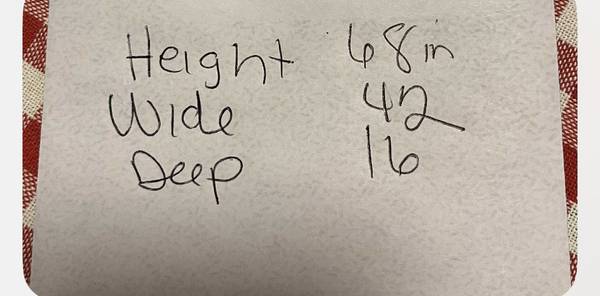 Height 68 in
Wide 42
Deep 16